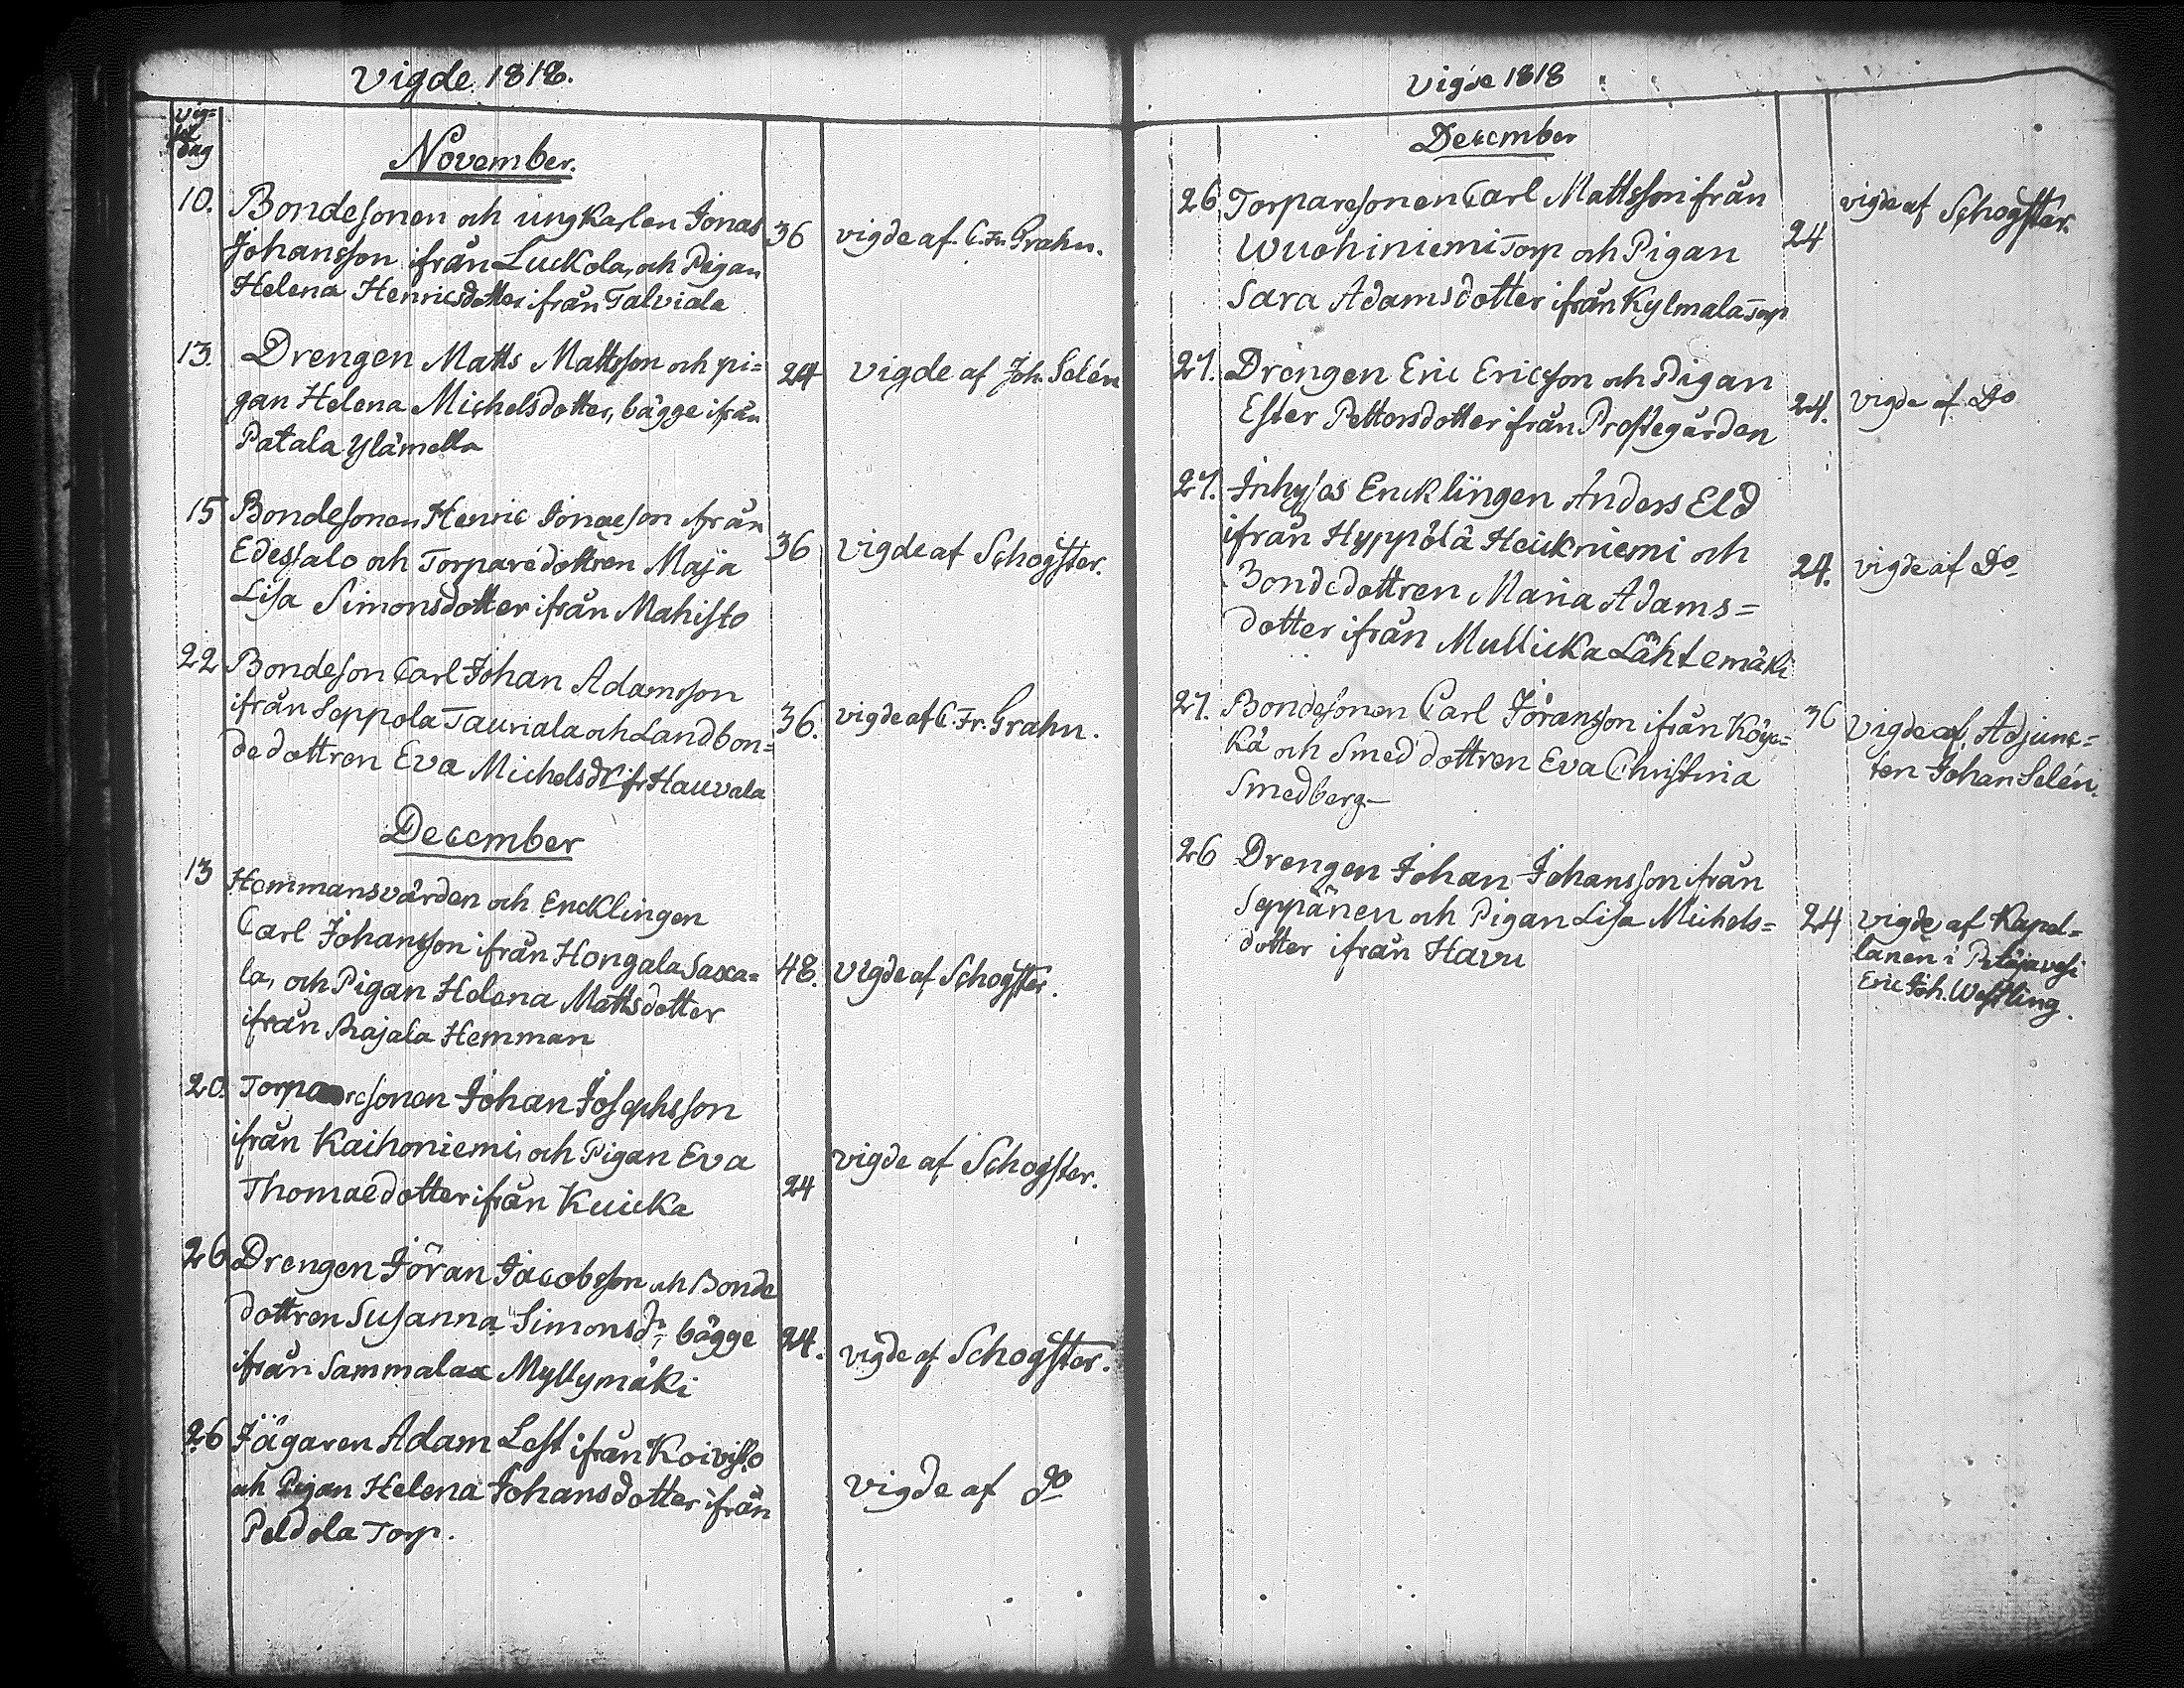 Vigde 1818.
Vig=
sel
dag
November.
10. Bondesonen och ungkarlen Jonas
Johansson ifrån Luckola, och Pigan
Helena Henricsdotter ifrån Talviala
36 vigde af C. Fr. Grahn.
13. Drengen Matts Mattsson och pi=
gan Helena Michelsdotter, bägge ifrån
Patala Ylämella
24 vigde af Joh. Selén
15 Bondesonen Henric Jonaeson ifrån
Edessalo och Torparedottren Maja
Lisa Simonsdotter ifrån Mahisto
36 vigde af Schogster.
22 Bondeson Carl Johan Adamsson
ifrån Seppola Tauriala och Landbon=
dedottren Eva Michelsdr ifr Hauvala
36. vigde af C. Fr. Grahn.
December
13 Hemmansvärden och Encklingen
Carl Johansson ifrån Hongala Saxa=
la, och Pigan Helena Mattsdotter
ifrån Rajala Hemman
48. vigde af Schogster.
20. Torparesonen Johan Josephsson
ifrån Kaihoniemi, och Pigan Eva
Thomaedotter ifrån Kuicka
24 vigde af Schogster.
26 Drengen Jöran Jacobsson och Bonde
dottren Susanna Simonsdr, bägge
ifrån Sammalax Myllymäki
24. vigde af Schogster.
26 Jägaren Adam Lest ifrån Koivisto
och Pigan Helena Johansdotter ifrån
Peldola Torp.
vigde af do
Vigde 1818
December
26 Torparesonen Carl Mattsson ifrån
Wuohiniemi Torp och Pigan
Sara Adamsdotter ifrån Kylmala Torp
24 vigde af Schogster.
27. Drengen Eric Ericsson och Pigan
Ester Pettersdotter ifrån Prostegården
24. vigde af Do
27. Inhyses Encklingen Anders Eld
ifrån Hyppölä Heickniemi och
Bondedottren Maria Adams=
dotter ifrån Mullicka Lähtemäki
24. vigde af Do
27. Bondesonen Carl Jöransson ifrån Köyc=
kä och Smeddottren Eva Christina
Smedberg
36 Vigde af Adjunc=
ten Johan Selén.
26 Drengen Johan Johansson ifrån
Seppänen och Pigan Lisa Michels=
dotter ifrån Havu
24 vigde af Kapel=
lanen i Petäjävesi
Eric Joh. Westling.